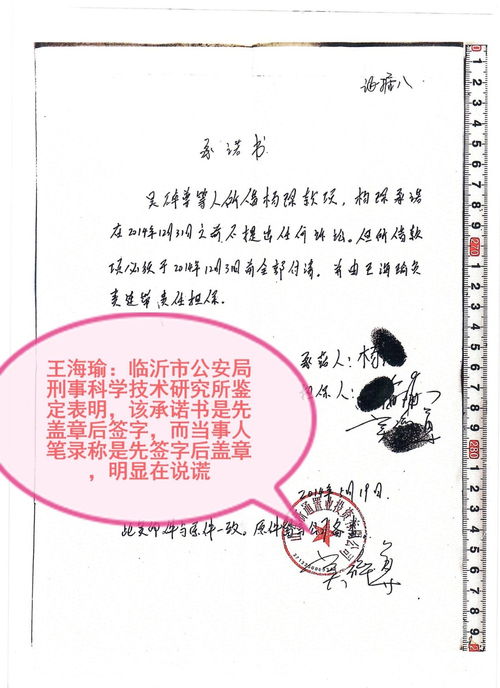 证据八
承诺书
吴碎尊等人所借杨琛款项，杨琛承诺
在2014年12月31日之前不提出任何诉讼。但所借款
项必须于2014年12月31日前全部付清，并由王海瑜负
责连带责任担保。
承诺人：杨
担保人：
王海瑜：临沂市公安局
刑事科学技术研究所鉴
定表明，该承诺书是先
盖章后签字，而当事人
笔录称是先签字后盖章
，明显在说谎
2014年 月19日
此复印件与原件一致。原件
通置业投资有限公司